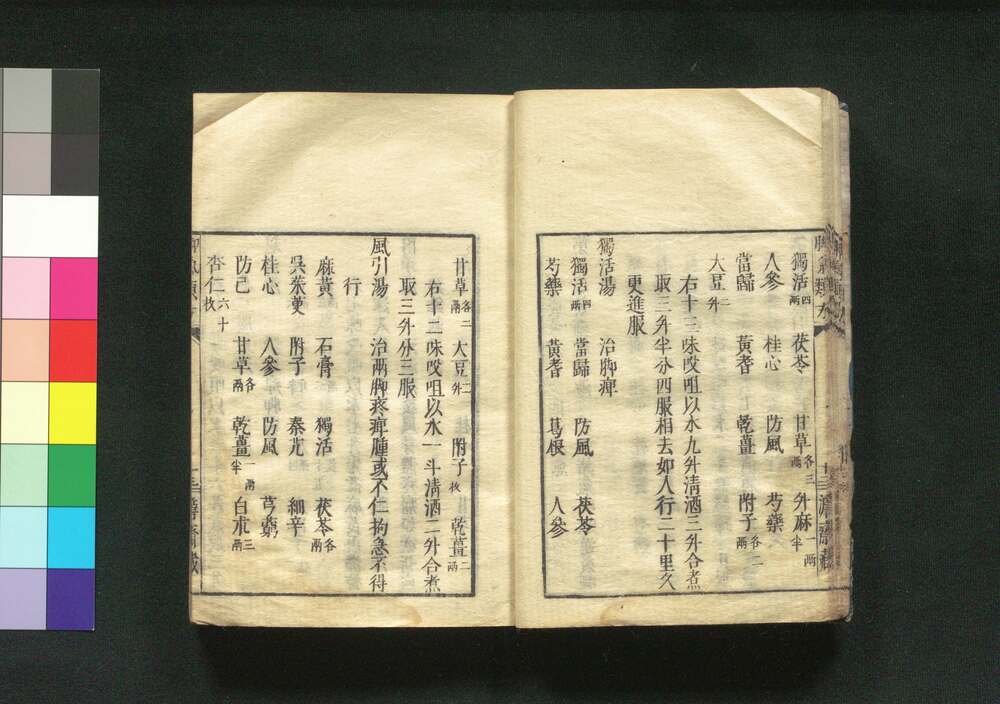 獨活四兩 茯苓 甘草各三兩 升麻一兩半
人參 桂心 防風 芍藥
當歸 黃耆 乾薑 附子各二兩
大豆二升
右十三味㕮咀以水九升清酒三升合煮
取三升半分四服相去如人行二十里久
更進服
獨活湯 治脚痺
獨活四兩 當歸 防風 茯苓
芍藥 黃耆 葛根 人參
甘草各二兩 大豆二升 附子枚 乾薑二兩
右十二味㕮咀以水一斗清酒二升合煮
取三升分三服
風引湯 治兩脚疼痺腫或不仁拘急不得
行
麻黃 石膏 獨活 茯苓各兩
吳茱萸 附子 秦艽 細辛
桂心 人參 防風 芎藭
防己 甘草各兩 乾薑一兩半 白朮三兩
杏仁六十枚